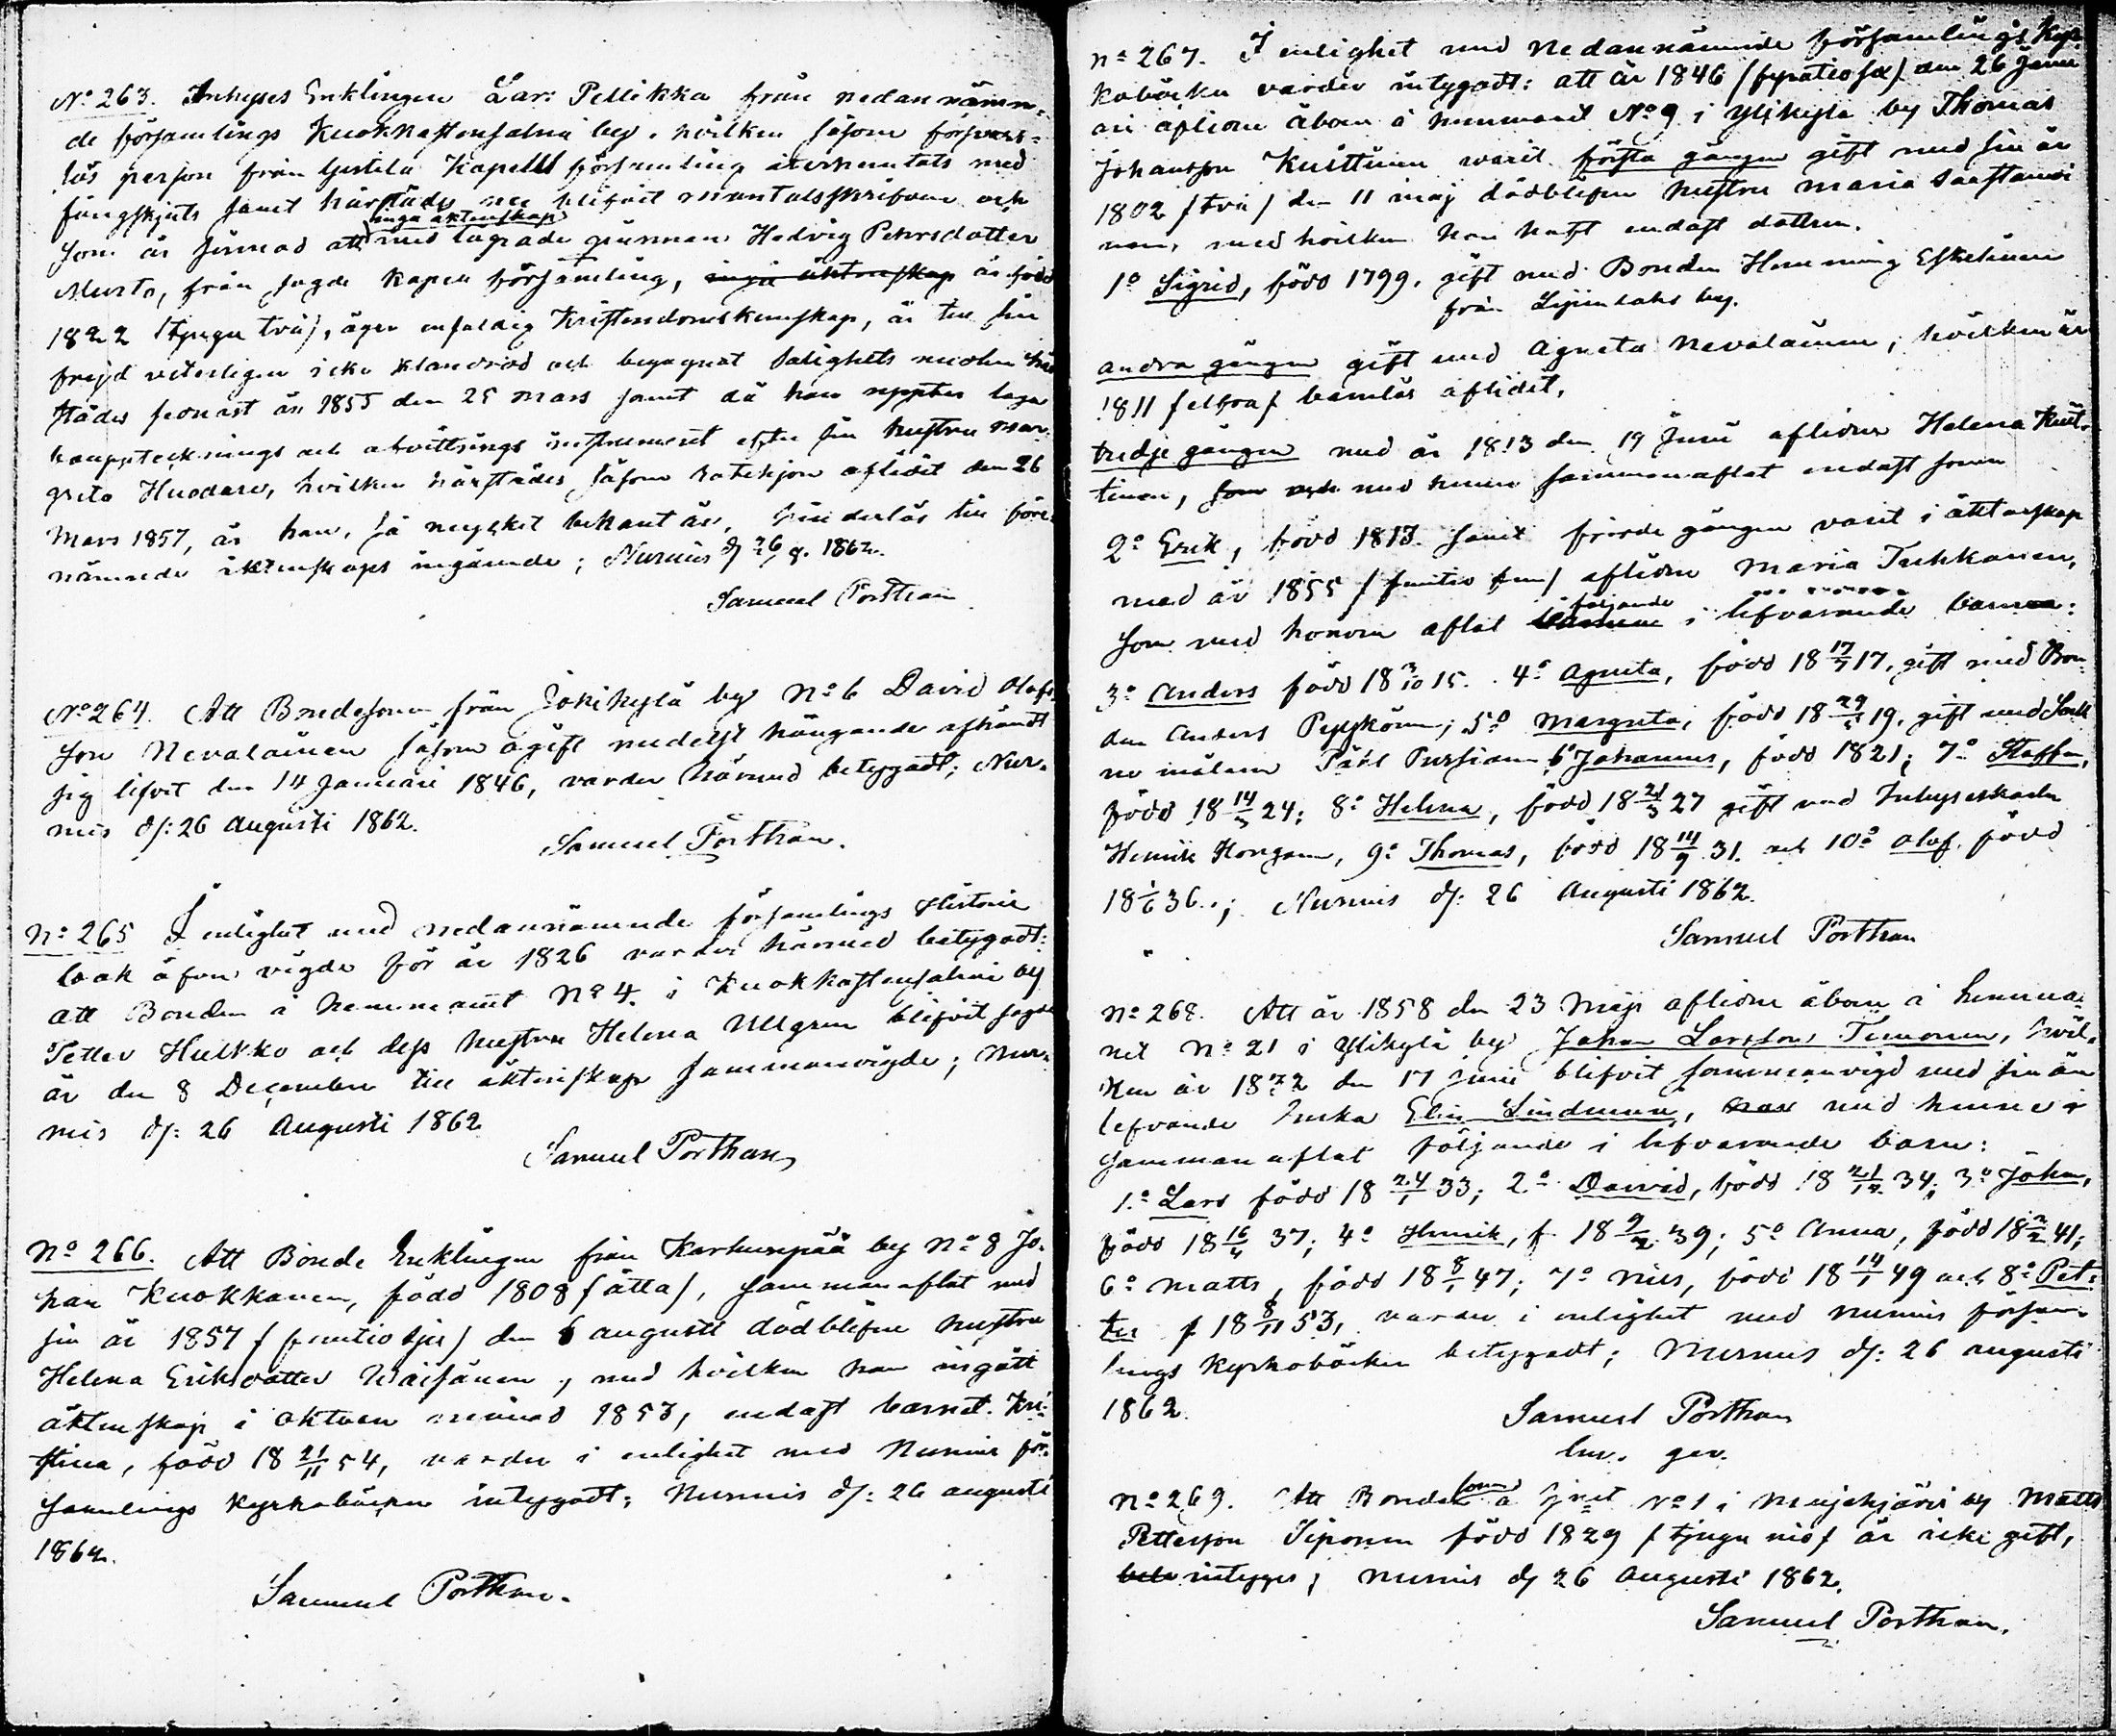 No 263. Inhyses Enklingen Lars Pellikka från nedannämn-
de församlings Kuokkastensalmi by, hvilken såsom försvars-
lös person från Kapell församling återhemtats med
fångskjuts samt härstädes nu blifvit mantalsskrifven och
inga äktenskap
som är sinnad att med lägrade qvinnan Hedvig Petersdotter
Murto, från sagde Kapell församling, inga äktenskap är född
1822 /tjugu två/, äger enfaldig Kristendomskunskap, är till sin
frejd veterligen icke klandrad och begagnat salighets medlen här
städes senast år 1855 den 25 mars samt då han uppter laga
bouppteknings och afvittrings instrument efter sin hustru Mar-
greta Huodare, hvilken härstädes, såsom rotehjon aflidit den 26
Mars 1857, är han, så mycket bekant är, hinderlös till före-
nämnde äktenskaps ingående; Nurmis d/ 26/8. 1862.
Samuel Porthan
No 264. Att Bondesonen från Jokikylä by No 6 David Olofs-
son Nevalainen såsom ogift medelst hängande afhändt
sig lifvet den 14 Januari 1846, varder härmed betygadt; Nur-
mis d/: 26 Augusti 1862.
Samuel Porthan.
No 265 I enlighet med nedannämnde församlings Historie
bok öfver vigde för år 1826 varder härmed betygadt:
att Bonden å hemmanet No 4. i Kuokkastensalmi by
Petter Hulkko och dess hustru Helena Ullgren blifvit sagde
år den 8 December till äktenskap sammanvigde; Nur-
mis d/: 26 Augusti 1862
Samuel Porthan
No 266. Att Bonde Enklingen från Karhunpää by No 8 Jo-
han Kuokkanen, född 1808 /åtta/, sammanaflat med
sin år 1857 /femtio sju/ den 6 augusti dödblifne hustru
Helena Eriksdotter Väisänen, med hvilken han ingått
äktenskap i oktober månad 1853, endast barnet Kri-
stina, född 18 21/11 54, varder i enlighet med Nurmis för-
samlings kyrkoböcker intygadt; Nurmis d/: 26 augusti
1862.
Samuel Porthan.
No 267. I enlighet med nedannämnde församlings Kyr-
koböcker varder intygadt: att år 1846 /fyratiosex/ den 26 Janu
ari aflidne åboen å hemmanet No 9 i Ylikylä by Thomas
Johansson Kuittinen warit första gången gift med sin år
1802 /två/ den 11 maj dödblefven hustru Maria Saastamoi
nen, med hvilken han haft endast dottren.
1o Sigrid, född 1799, gift med Bonden Hemming Eskelinen
från Lipinlaks by.
andra gången gift med Agneta Nevalainen, hvilken år
1811 /elfva/ barnlös aflidit,
tredje gången med år 1813 den 19 Juni aflidna Helena Kuit-
tinen, som och med henne sammanaflat endast sonen
2o Erik, född 1813. samt fjerde gången varit i äktenskap
med år 1855 /femtio fem/ aflidne Maria Tuhkanen,
följande
som med honom aflat barnen i lifvarande barnen:
3o Anders född 18 3/10 15. 4o Agneta, född 18 17/7 17, gift med Bon-
den Anders Pyykönen; 5o Margreta, född 18 29/4 19, gift med Sock
ne målaren Påhl Pursiainen 6o Johannes, född 1821; 7o Staffan,
född 18 14/3 24; 8o Helena, född 18 21/3 27 gift med Inhyseskarlen
Henrik Hongonen, 9o Thomas, född 18 14/9 31. och 10o Olof, född
18 1/6 36.; Nurmis d/: 26 Augusti 1862.
Samuel Porthan
No 268. Att år 1858 den 23 Maji aflidne åboen å hemma-
net No 21 i Ylikylä by Johan Larsson Timonen, hvil-
ken år 1832 den 17 Juni blifvit sammanvigd med sin än
lefvande Enka Elin Lindman, har med henne
sammanaflat följande i lifvarande barn:
1.o Lars född 18 24/1 33; 2o David, född 18 21/12 34; 3o Johan,
född 18 16/4 37; 4o Henrik, f. 18 9/2 39; 5o Anna, född 18 2/2 41;
6o Matts, född 18 8/1 47; 7o Nils, född 18 14/1 49 och 8o Pet-
ter f 18 8/11 53, varder i enlighet med Nurmis försam-
lings Kyrkoböcker betygadt; Nurmis d/: 26 augusti
1862.
Samuel Porthan
No 269. Att Bondesonen å No 1 i Mujejärvi by Matts
Pettersson Siponen född 1829 /tjugu nio/ är icke gift,
intygas; Nurmis d/ 26 Augusti 1862.
Samuel Porthan.